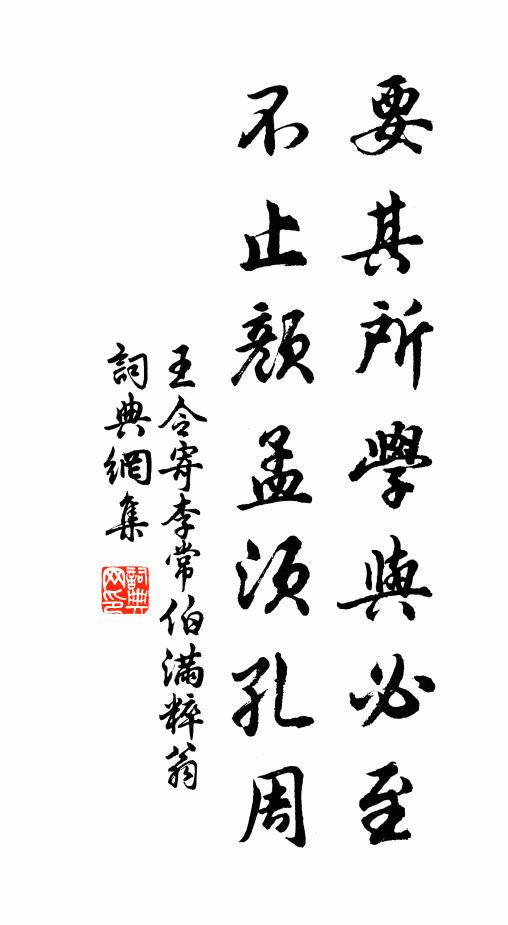 要其所學與必至
不止顏孟須孔周
王令寄李常伯滿粹翁
詞典網集
詞典
网印